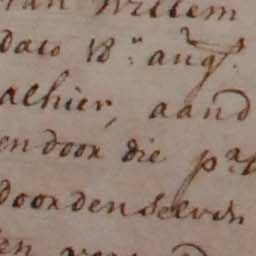 van Willem
dato 18:" aug:
alhier, aand
endoor die p:r
doordenselven